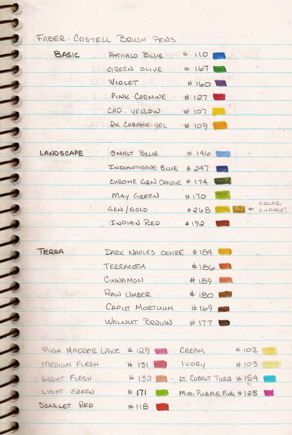 FABER-CASTELL BRUSH PENS
BASIC PHTHALO BLUE # 110
GREEN OLIVE # 167
VIOLET # 160
PINK CARMINE # 127
CAD. YELLOW # 107
DK CHROME YEL # 109
LANDSCAPE SMALT BLUE # 146
INDIANTHRENE BLUE # 247
CHROME GRN OPAQUE # 174
MAY GREEN # 170
GRN/GOLD # 268 ← COLOR CHANGE?
INDIAN RED # 192
TERRA DARK NAPLES OCHRE # 184
TERRACOTTA # 186
CINNAMON # 189
RAW UMBER # 180
CAPUT MORTUUM # 169
WALNUT BROWN # 177
PINK MADDER LAKE # 129 CREAM # 102
MEDIUM FLESH # 131 IVORY # 103
LIGHT FLESH # 132 LT. COBALT TURQ # 154
LIGHT GREEN # 171 MID. PURPLE PINK # 125
SCARLET RED # 118